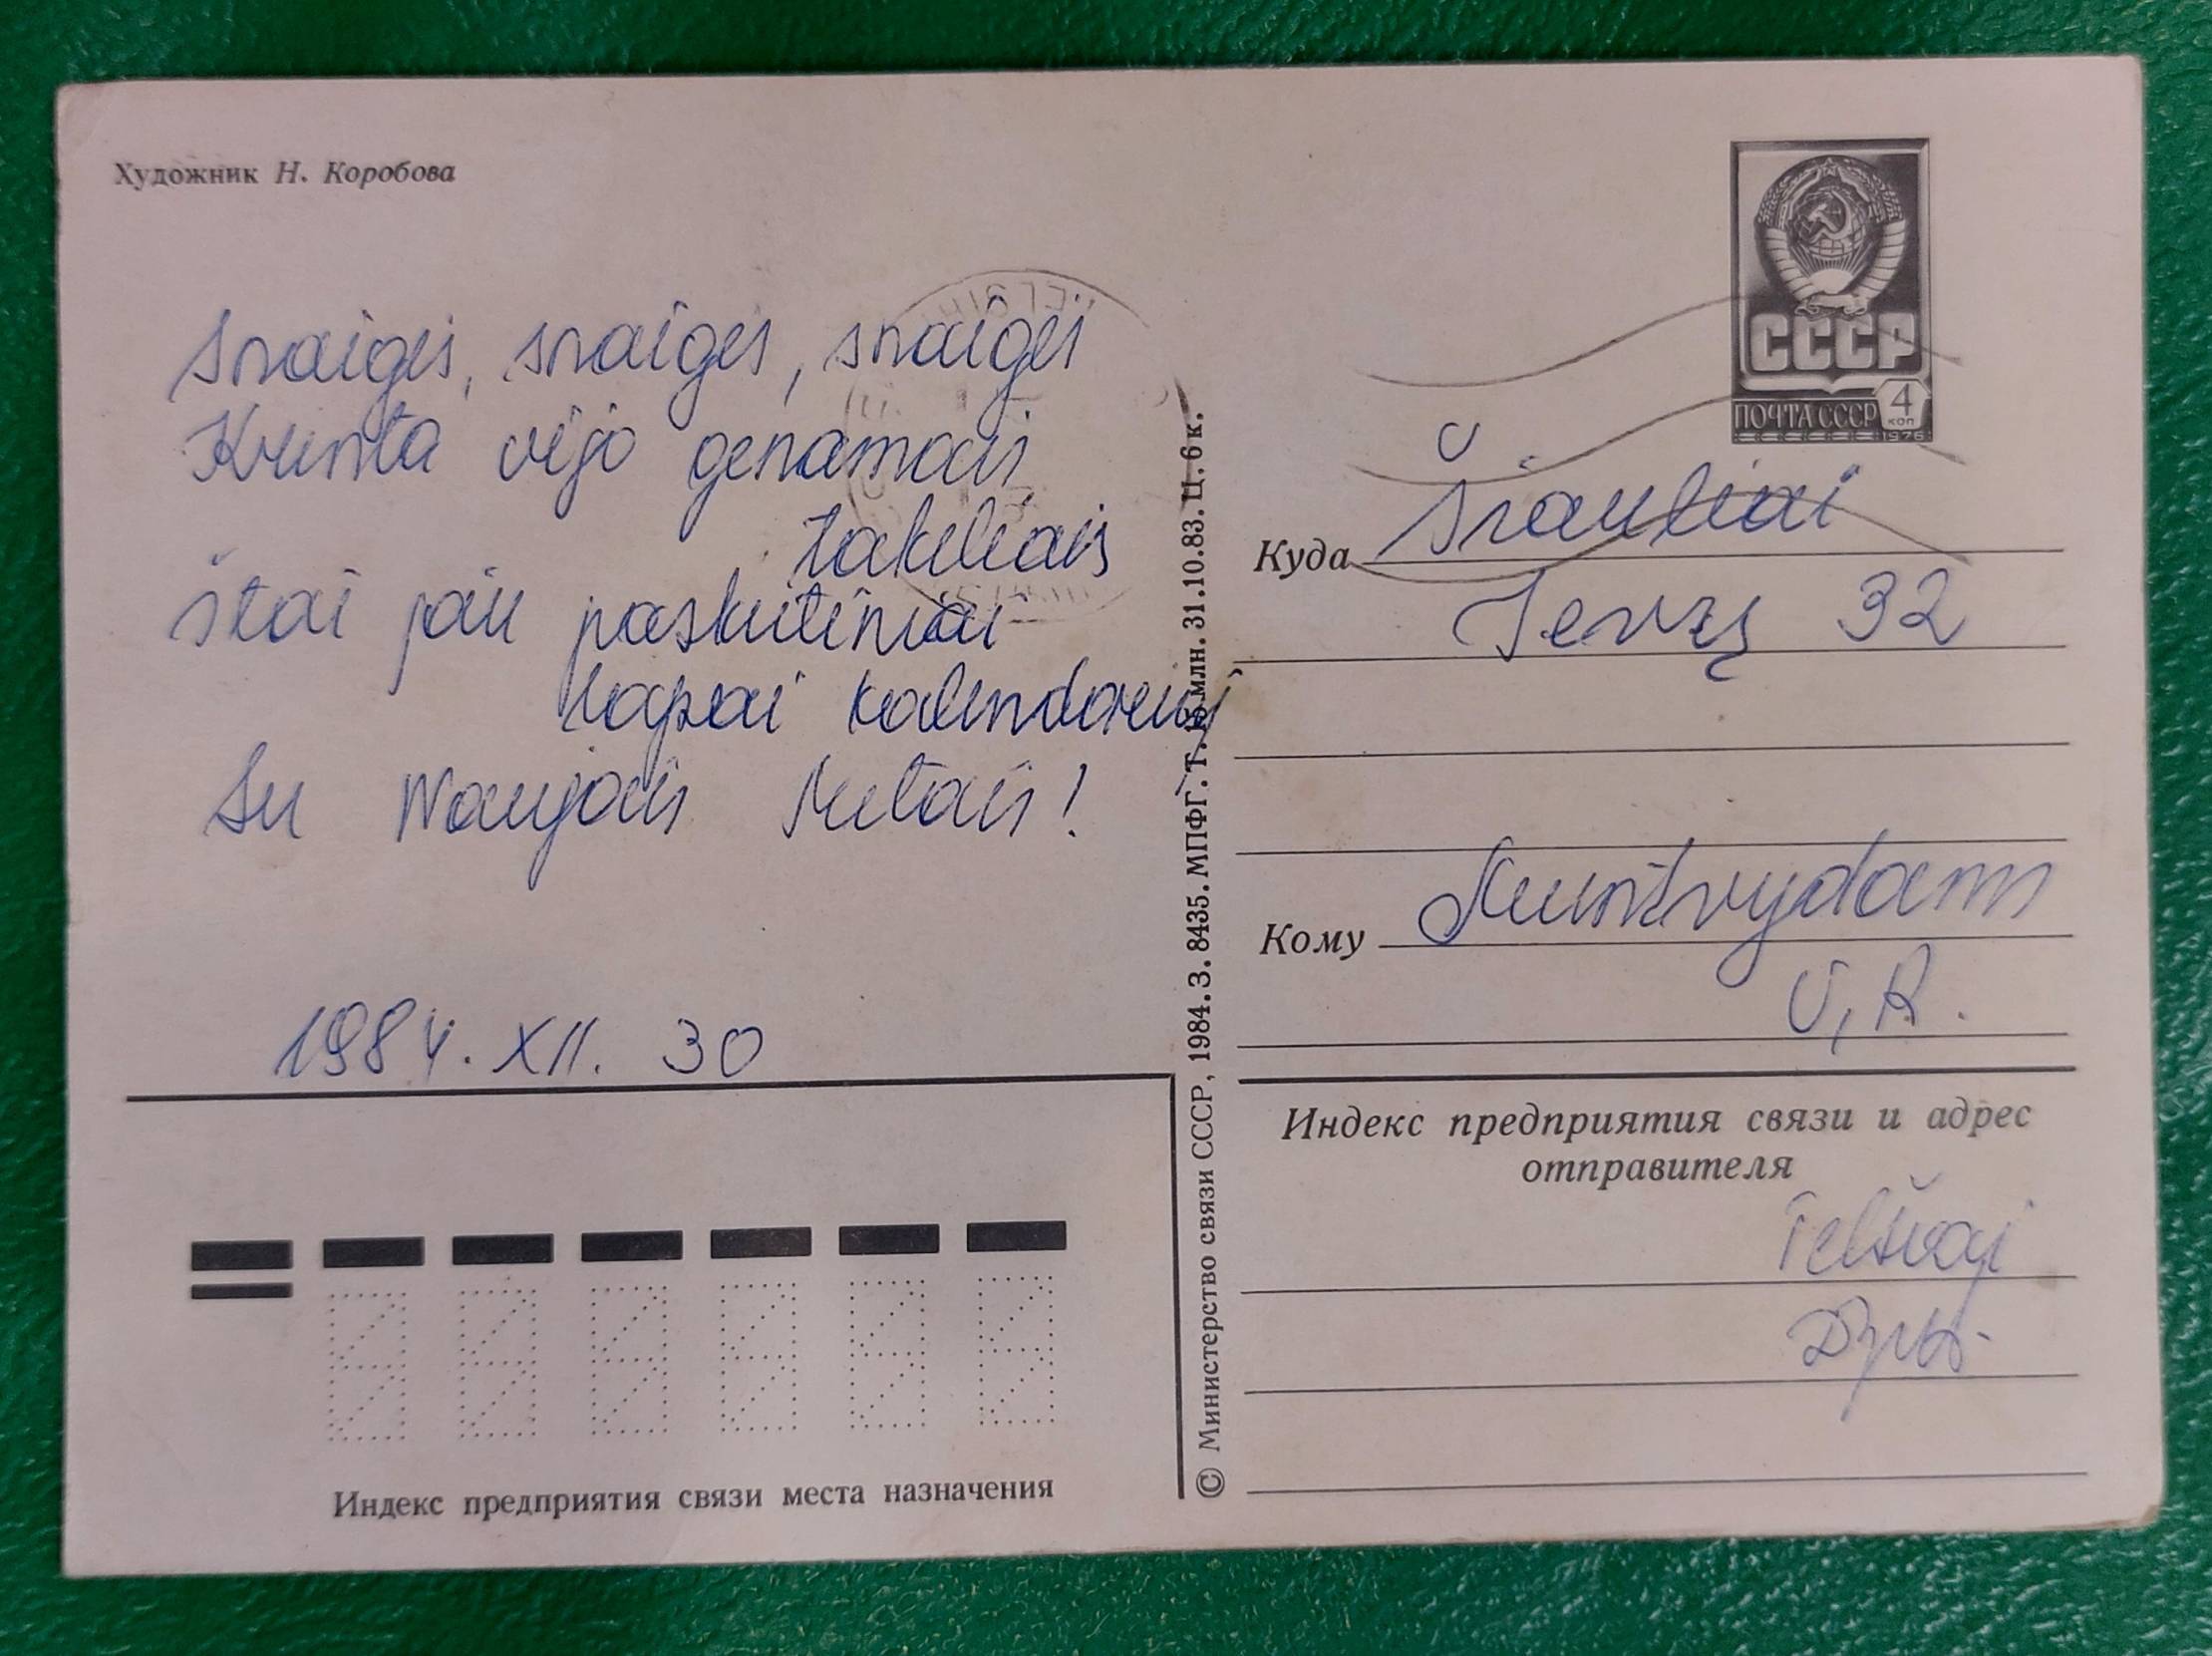 Художник Н. Коробова
Snaigės, snaigės, snaigės
Krinta vėjo genamos
takeliais
štai jau paskutiniai
lapai kalendoriuj
Su Naujais Metais!
1984. XII. 30
Индекс предприятия связи места назначения
© Министерство связи СССР, 1984. З. 8435. МПФГ. Т. млн. 31.10.83. Ц. 6 к.
СССР
4
коп
ПОЧТА СССР
1976
Куда Šiauliai
Ievų 32
Кому Muntvydams
V, R.
Индекс предприятия связи и адрес
отправителя
Telšiai